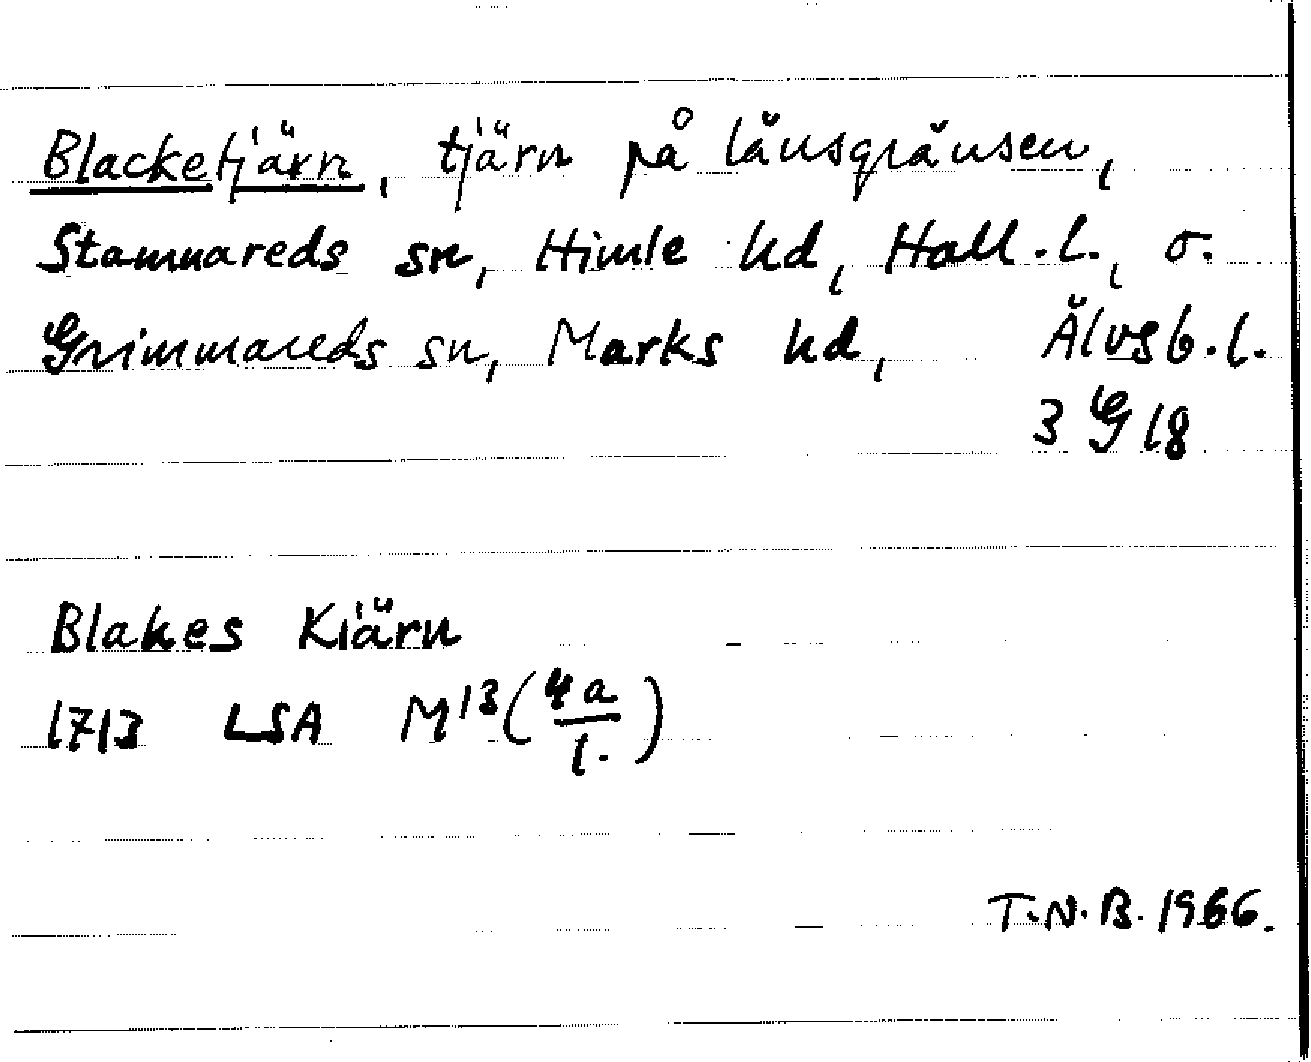 Blacketjärn, tjärn på länsgränsen,
Stamnareds sn, Himle hd, Hall.l., o.
Grimmareds sn, Marks hd, Älvsb.l.
3 G 18
Blakes Kiärn
1713 LSA M13(4a/1.)
T.N.B. 1966.